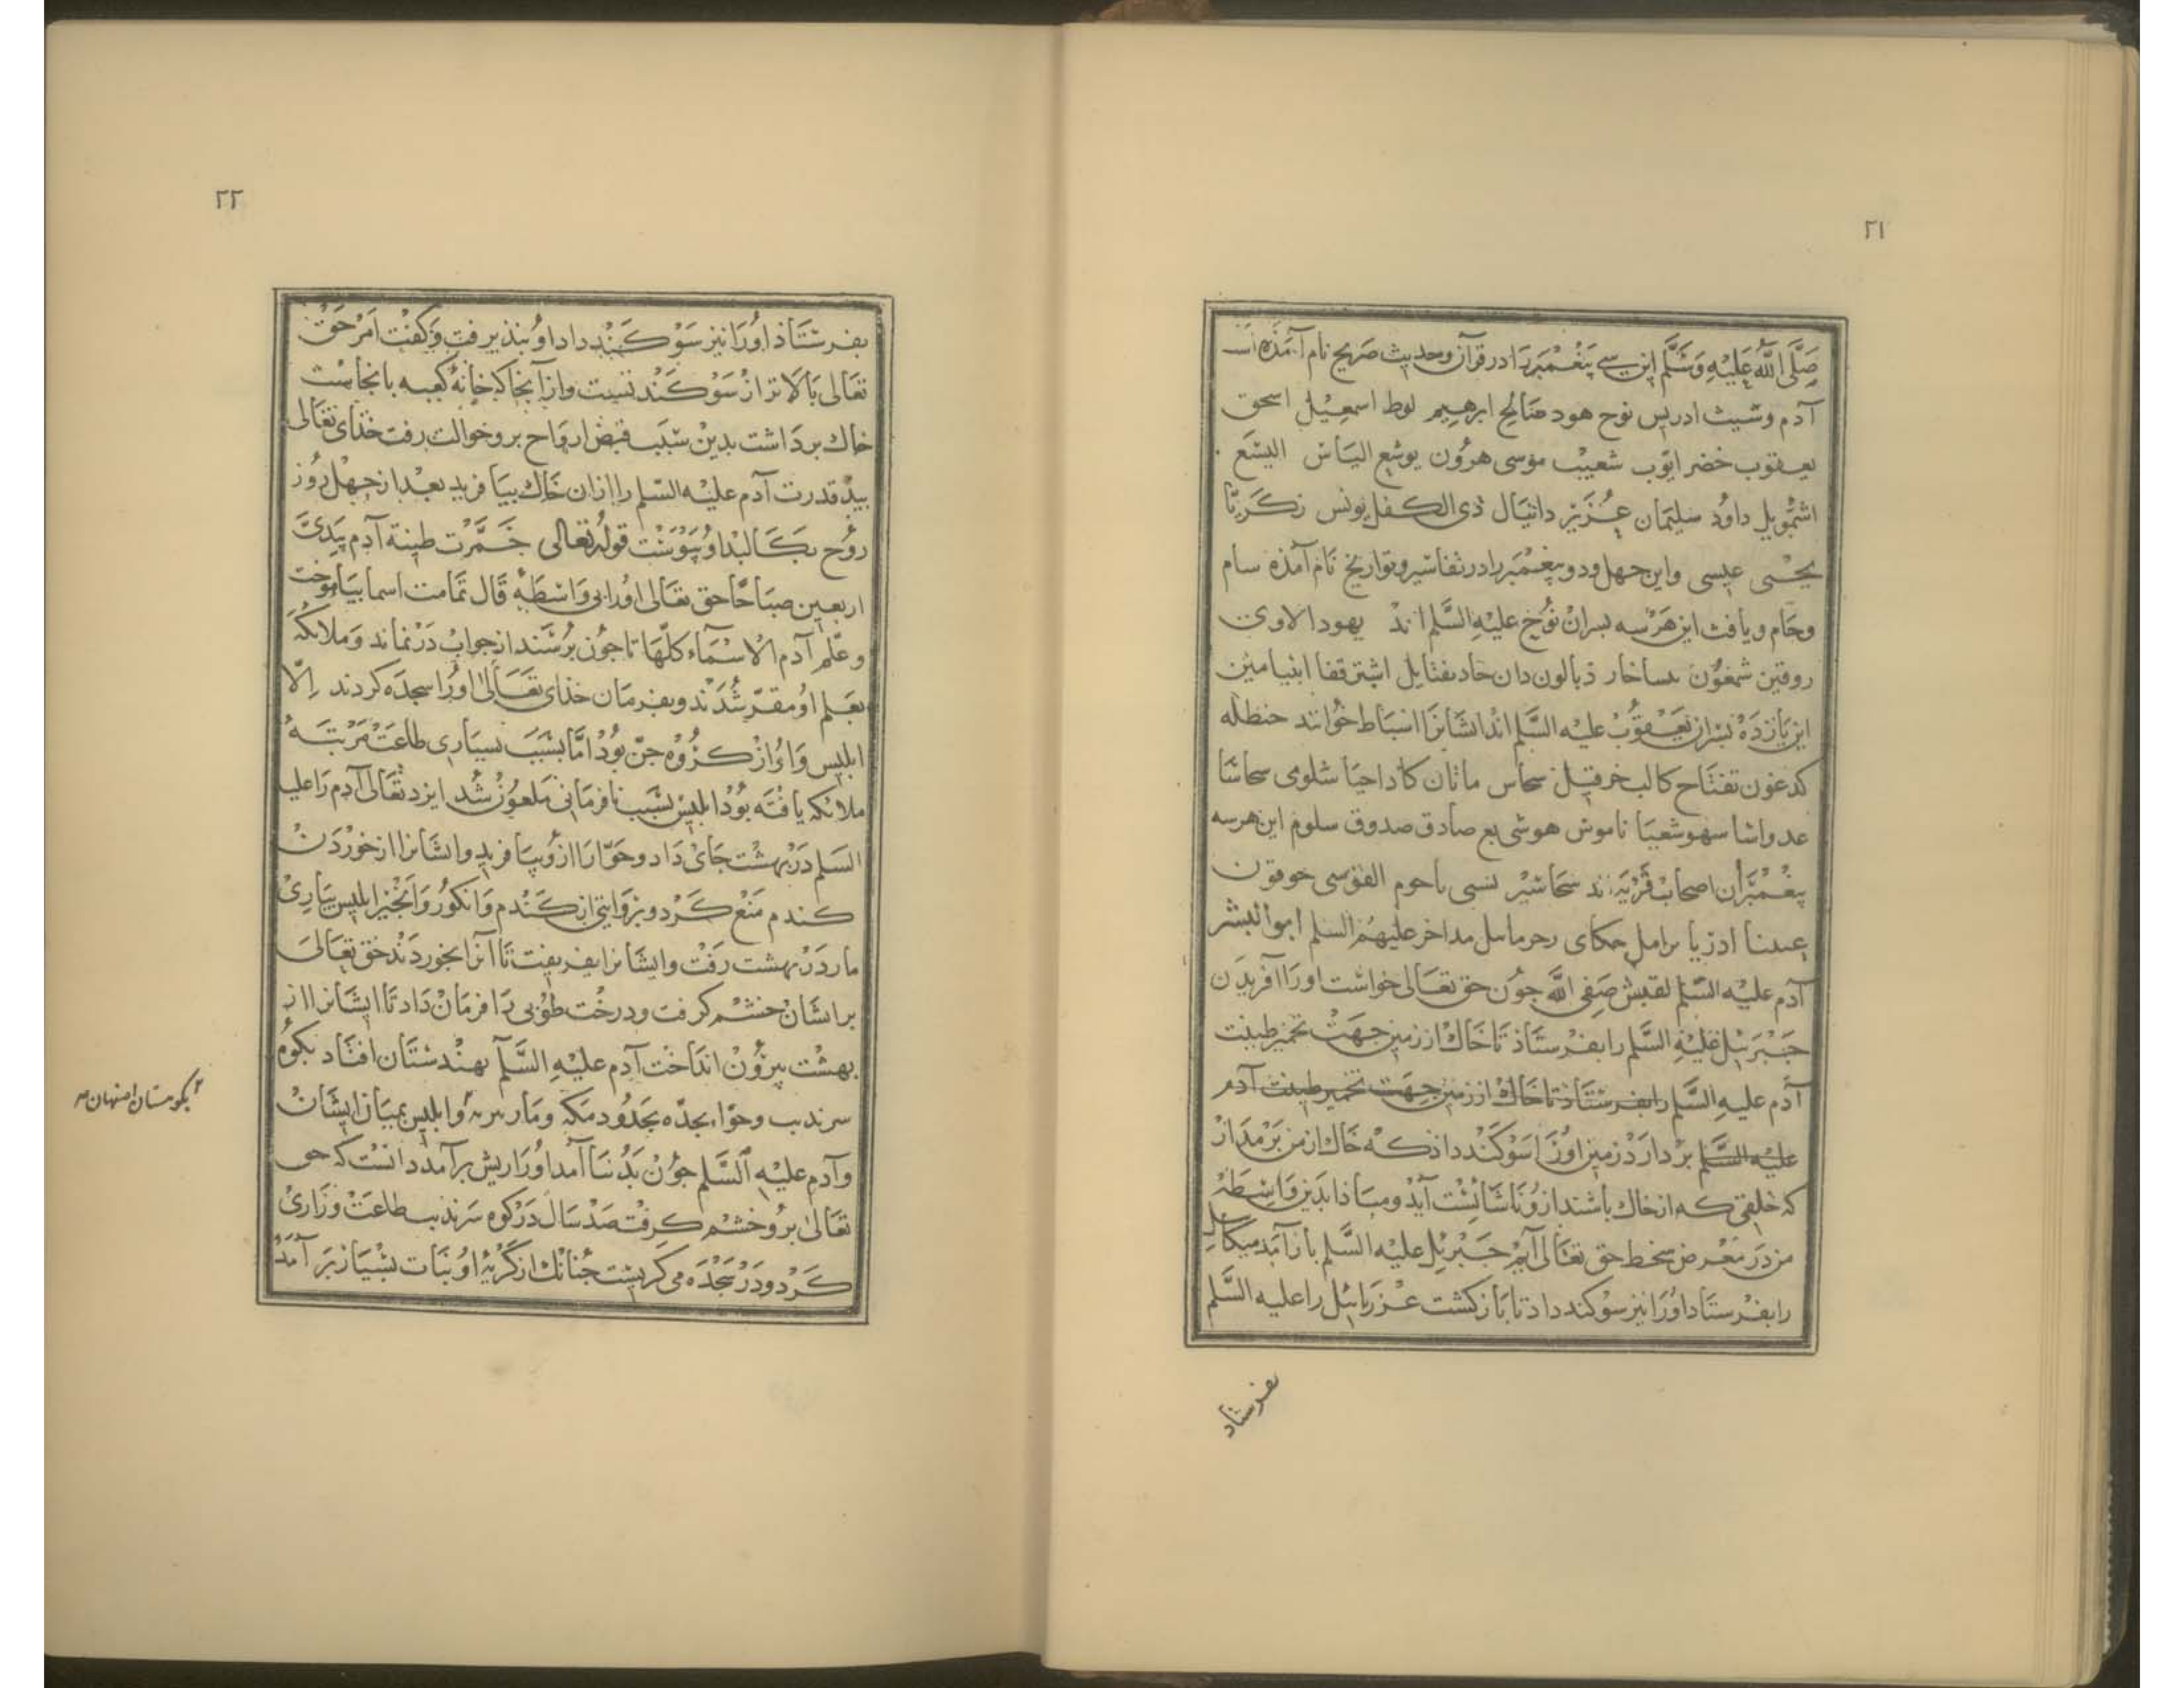 ۲۱
صَلَّی اللَّهُ عَلَیْهِ وَسَلَّم این سی پَیْغمبر را در قرآن و حدیث صریح نام آمَذه است
آدم و شیث ادریس نوح هود صَالح ابرهیم لوط اسمعیل اسحق
یعقوب خضر ایّوب شعیب موسی هرُون یوشع الیاس الیسَع
اشمُویل داوُد سلیمان عُزَیر دانیال ذی الکفل یونس زکَرِیّا
یحیی عیسی و این چهل و دو پیغمبر را در تفاسیر و تواریخ نام آمذه سام
وحَام و یافث این هَرْسه بسران نُوح علیه السَّلم اند یهودا لاوی
روقین شمعُون یساخار ذبالون دان جاد نفتایل ابنیامین
این یازدَهْ بسران یَعْقُوب علیه السَّلم اند ایشانرا اسباط خوانند حنظله
کدعون تفتاح کالب خرقیل ماثان شلومی
شعیا ناموش هوشی صادق صدوق سلوم این هرسه
پیغمبران اصحاب قریه اند
علیهم السلم ابو البشر
آدم علیه السّلم لقبش صَفی اللَّه جون حق تعَالی خواست اورا آفریدن
جَبْرَئیل عَلَیْهِ السَّلم را بفرستاذ تا خَاك از زمین جهَتْ تخمیر طینت
آدم علیهِ السَّلم را بفرستاذ تا خاك از زمین جهت تخمیر طینت آدم
علیه السَّلم بر دارَدْ زمین اورَا سَوکند داذ که خاك از من بَرْمَدار
که خلقی که از خاك باشند ازو نَاشایْست آیذ و مبَاذا بدین واسِطَه
من دَر مَعْرض سخط حق تعَالی آیم جَبْرئِل علیه السَّلم باز آمد میکائل
را بفرستَاد اورَا نیز سوکند داد تا بَاز کشت عزرَائیل را علیه السَّلم
بفرستاد
۲۲
بفرستَاذ اُورَا نیز سَوکَنْد داد اوُ نپذیرفت وَ کفْت اَمر حَق
تعَالی بَالاتر از سَوکَند تست و از آنجا که خانهٔ کعبه بانجاست
خاك بردَاشت بدین سَبَب قبض ارواح برو حوالت رفت خذای تعَالی
بیذ قدرت آدم علیه السّلم را ازان خَاك بیَافرید بعد از چهل روز
روُح بکَالبذ اوُ پیوَسْت قولُه تعالی خَمَّرت طینة آدم بیَدیَّ
اربعین صبَاحًا حق تعَالی اورا بی وَاسْطَهٔ قَال تمَامت اسما بیَاموخت
وعلّم آدم الاَسْمَآء کلّها تا جوُن پُرسَند از جواب دَر نمَاند وَ ملائکَه
بعلم اوُ مقرّ شُدند و بفرمَان خذای تعَالیٰ اورُا سجدَه کردند اِلّا
ابلیس وَاوُ از کرُوه جنّ بوُد امّا بسَبَب بسیَاری طاعَتْ مَرْتبَهٔ
ملائکه یافته بوُد ابلیس بسَبب نافرمانی ملعوُن شد ایزد تعَالی آدم رَا علیه
السَلم دَر بهشت جَایْ دَاد و حَوّا رَا ازوُ بیَافرید و ایشانرا از خورْدَن
کندم مَنع کَرد و بروَایتی از کَندم وَ انکوُر وَ انجیر ابلیس بیَاریْ
مار دَر بهشت رَفت و ایشانرا بفریفت تَا آنرا بخوردَند حَق تعَالی
بر ایشَان خشم کرفت و درخت طوُبی رَا فرمَانْ دَاد تا ایشَانرا از
بهشت بیروُن انداخت آدم علیه السَّلم بهندستَان افتاد بکوُه
سرندیب و حوّا بجدّه بحَدُود مَکّه وَ مَار و ابلیس بمیَان ایشَانْ
وآدم علیه السَّلم جوُن بَدُنیَا آمد اورَا ریش برآمد دانست که حق
تعَالیٰ برُو خشم کرِفت صَدْ سَال دَر کوه سَرندیب طاعَت وَزَاری
کَرد و دَر سَجْدَه می کریست جُنانك از کریَهٔ اوُ نبَات بسیَار بَر آمَد
بکوهستان اصفهان صح